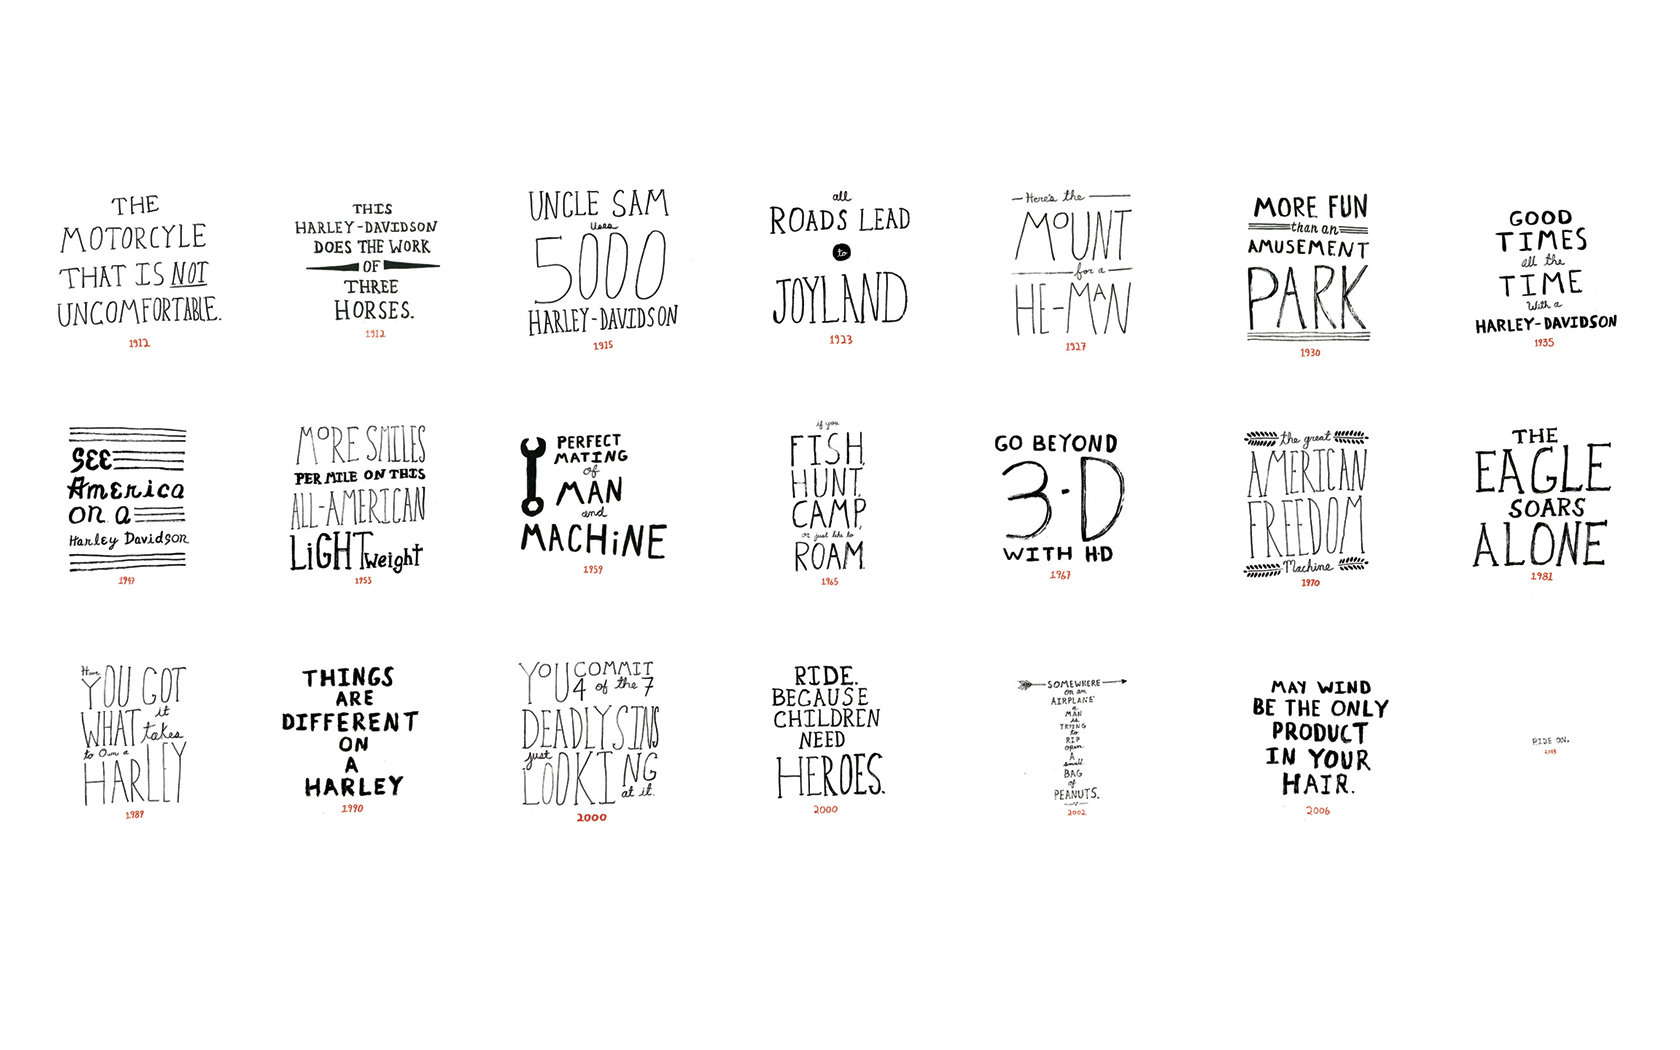 THE
MOTORCYLE
THAT IS NOT
UNCOMFORTABLE.
1912
THIS
HARLEY-DAVIDSON
DOES THE WORK
OF
THREE
HORSES.
1912
UNCLE SAM
uses
5000
HARLEY-DAVIDSON
1915
all
ROADS LEAD
to
JOYLAND
1923
Here's the
MOUNT
for a
HE-MAN
1927
MORE FUN
than an
AMUSEMENT
PARK
1930
GOOD
TIMES
all the
TIME
With a
HARLEY-DAVIDSON
1935
SEE
America
on a
Harley Davidson
1947
MORE SMILES
PER MILE ON THIS
ALL-AMERICAN
LiGHTweight
1953
PERFECT
MATING
of
MAN
and
MACHiNE
1959
if you
FISH,
HUNT,
CAMP,
or just like to
ROAM.
1965
GO BEYOND
3-D
WITH H-D
1967
the great
AMERICAN
FREEDOM
Machine
1970
THE
EAGLE
SOARS
ALONE
1981
Have
YOU GOT
WHAT it
takes
to Own a
HARLEY
1989
THINGS
ARE
DIFFERENT
ON
A
HARLEY
1990
YOU COMMIT
4 of the 7
DEADLY SINS
just
LOOKING
at it.
2000
RIDE.
BECAUSE
CHILDREN
NEED
HEROES.
2000
SOMEWHERE
on an
AIRPLANE
a
MAN
is
TRYING
to
RIP
open
A
small
BAG
of
PEANUTS.
2002
MAY WIND
BE THE ONLY
PRODUCT
IN YOUR
HAIR.
2006
RIDE ON.